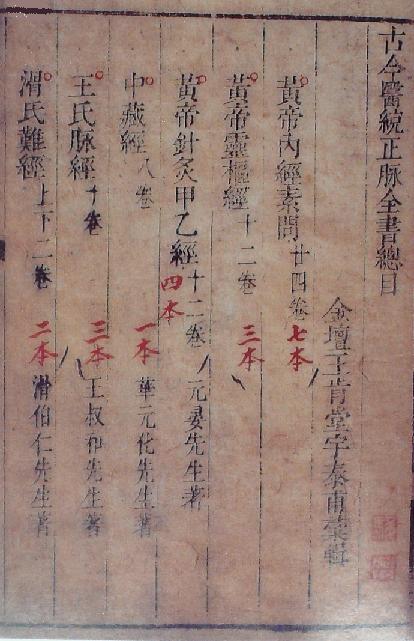 古今醫統正脉全書總目
金壇王肯堂宇泰甫彚輯
黃帝內經素問廿四卷 七本
黃帝靈樞經十二卷 三本
黃帝針灸甲乙經十二卷 四本 元晏先生著
中藏經八卷 一本 華元化先生著
王氏脉經十卷 三本 王叔和先生著
滑氏難經上下二卷 二本 滑伯仁先生著